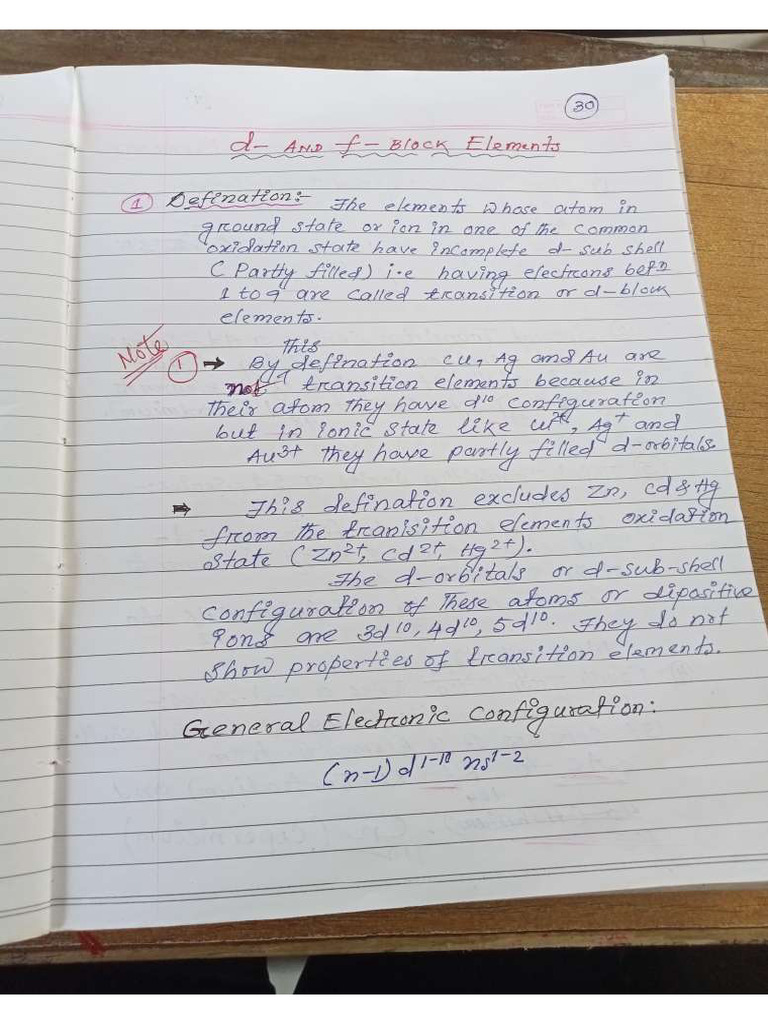 30
d- AND f- Block Elements
① Defination:- The elements whose atom in
ground state or ion in one of the common
oxidation state have incomplete d- sub shell
(Partly filled) i.e having electrons betn
1 to 9 are called transition or d-block
elements.
Note ① → By this defination Cu, Ag and Au are
not transition elements because in
their atom they have d¹⁰ configuration
but in ionic state like Cu²⁺, Ag⁺ and
Au³⁺ they have partly filled d-orbitals.
⇒ This defination excludes Zn, Cd & Hg
from the tranisition elements oxidation
state (Zn²⁺, Cd²⁺, Hg²⁺).
The d-orbitals or d-sub-shell
configuration of these atoms or dipositive
ions are 3d¹⁰, 4d¹⁰, 5d¹⁰. They do not
show properties of transition elements.
General Electronic Configuration:
(n-1) d¹⁻¹⁰ ns¹⁻²